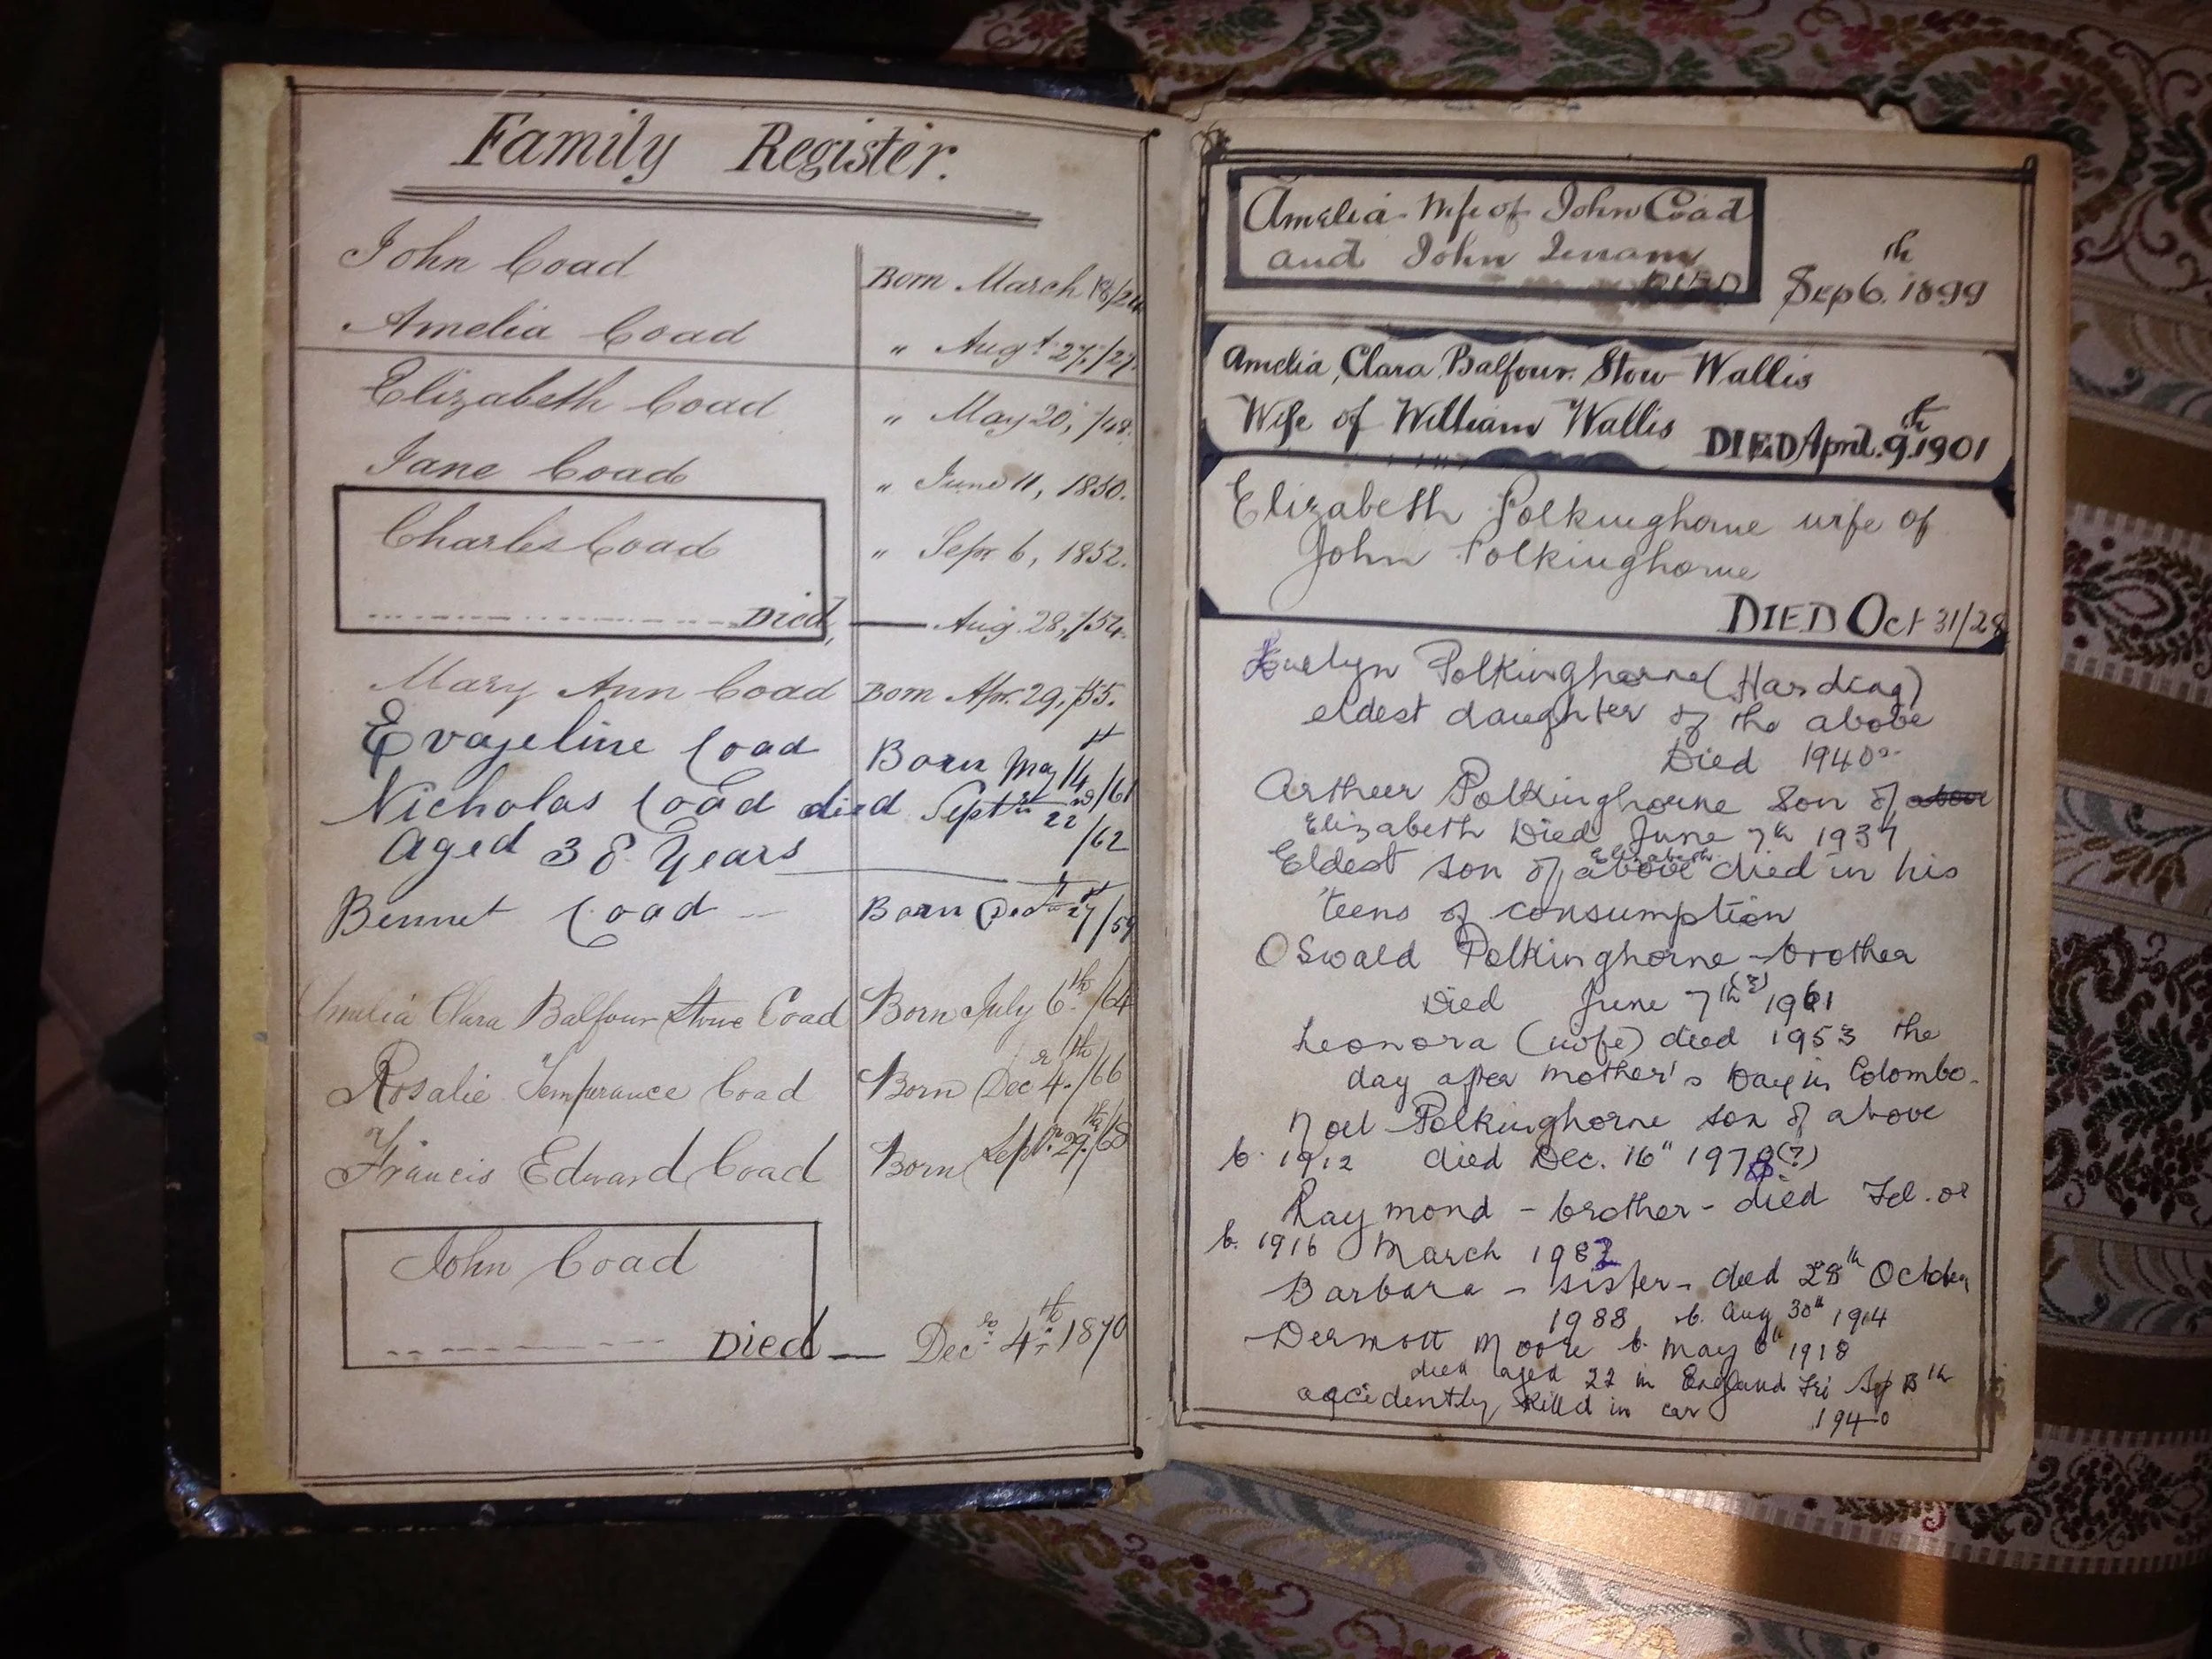 Family Register.
John Coad
Born March 18/24
Amelia Coad
" Augt. 27,/27.
Elizabeth Coad
" May 20, /48.
Jane Coad
" June 11, 1850.
Charles Coad
" Sepr 6, 1852.
Died, — Aug. 28, /54.
Mary Ann Coad Born Apr. 29, /55.
Evageline Coad Born May 14 /61
Nicholas Coad died Sept 22
Aged 38 Years /62
Bennet Coad Born 27/59
Amelia Clara Balfour Stow Coad Born July 6th /64
Rosalie Temperance Coad Born Decr 4th /66
Francis Edward Coad Born Septr 29th /68
John Coad
Died — Dec 4th 1870
Amelia Wife of John Coad
and John
DIED Sep 6th 1899
Amelia, Clara, Balfour. Stow Wallis
Wife of William Wallis DIED April. 9th 1901
Elizabeth Polkinghorne wife of
John Polkinghorne
DIED Oct 31/28
Evelyn Polkinghorne (Harding)
eldest daughter of the above
Died 1940
Arthur Polkinghorne son of above
Elizabeth Died June 7th 1937
Eldest son of above Elizabeth died in his
teens of consumption
Oswald Polkinghorne - brother
Died June 7th (?) 1961
Leonora (wife) died 1953 the
day after mother's Day in Colombo.
Noel Polkinghorne son of above
b. 1912 died Dec. 16" 1978 (?)
Raymond - brother - died Feb. or
b. 1916 March 1982
Barbara - sister - died 28th October
1988 b. Aug 30th 1914
Dermott Moore b. May 6th 1918
died aged 22 in England Fri Sep 13th
accidently killed in car 1940